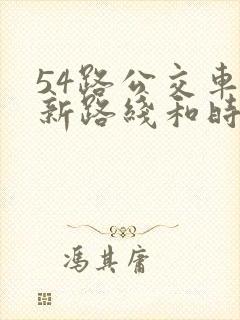 54路公交車
新路綫和時
馮其庸